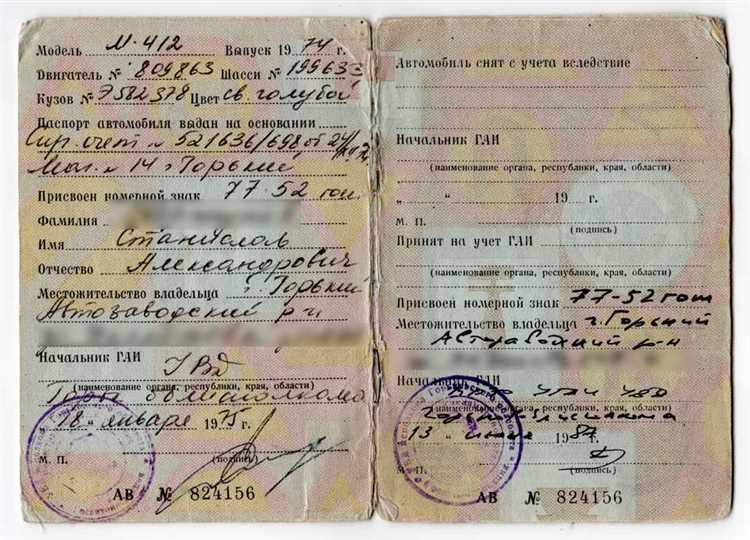 Модель М-412 Выпуск 1974 г.
Двигатель № 809863 Шасси № 199633
Кузов № 7582378 Цвет св. голубой
Паспорт автомобиля выдан на основании
счет № 521636/698 от 24/
Маг. № 14 г. Горький
Присвоен номерной знак 77-52
Фамилия
Имя Станислав
Отчество Александрович
Местожительство владельца г. Горький
Автозаводский р-н
Начальник ГАИ УВД
(наименование органа, республики, края, области)
Горьк облисполкома
"18" января 1975 г.
М. П. (подпись)
АВ № 824156
Автомобиль снят с учета вследствие
Начальник ГАИ
(наименование органа, республики, края, области)
" " 19 г.
М. П. (подпись)
Принят на учет ГАИ
(наименование органа, республики, края, области)
Присвоен номерной знак 77-52 гот
Местожительство владельца г. Горький
Автозаводский р-н
Начальник ГАИ УГАИ УВД
(наименование органа, республики, края, области)
"13" 1987 г.
М. П. (подпись)
АВ № 824156